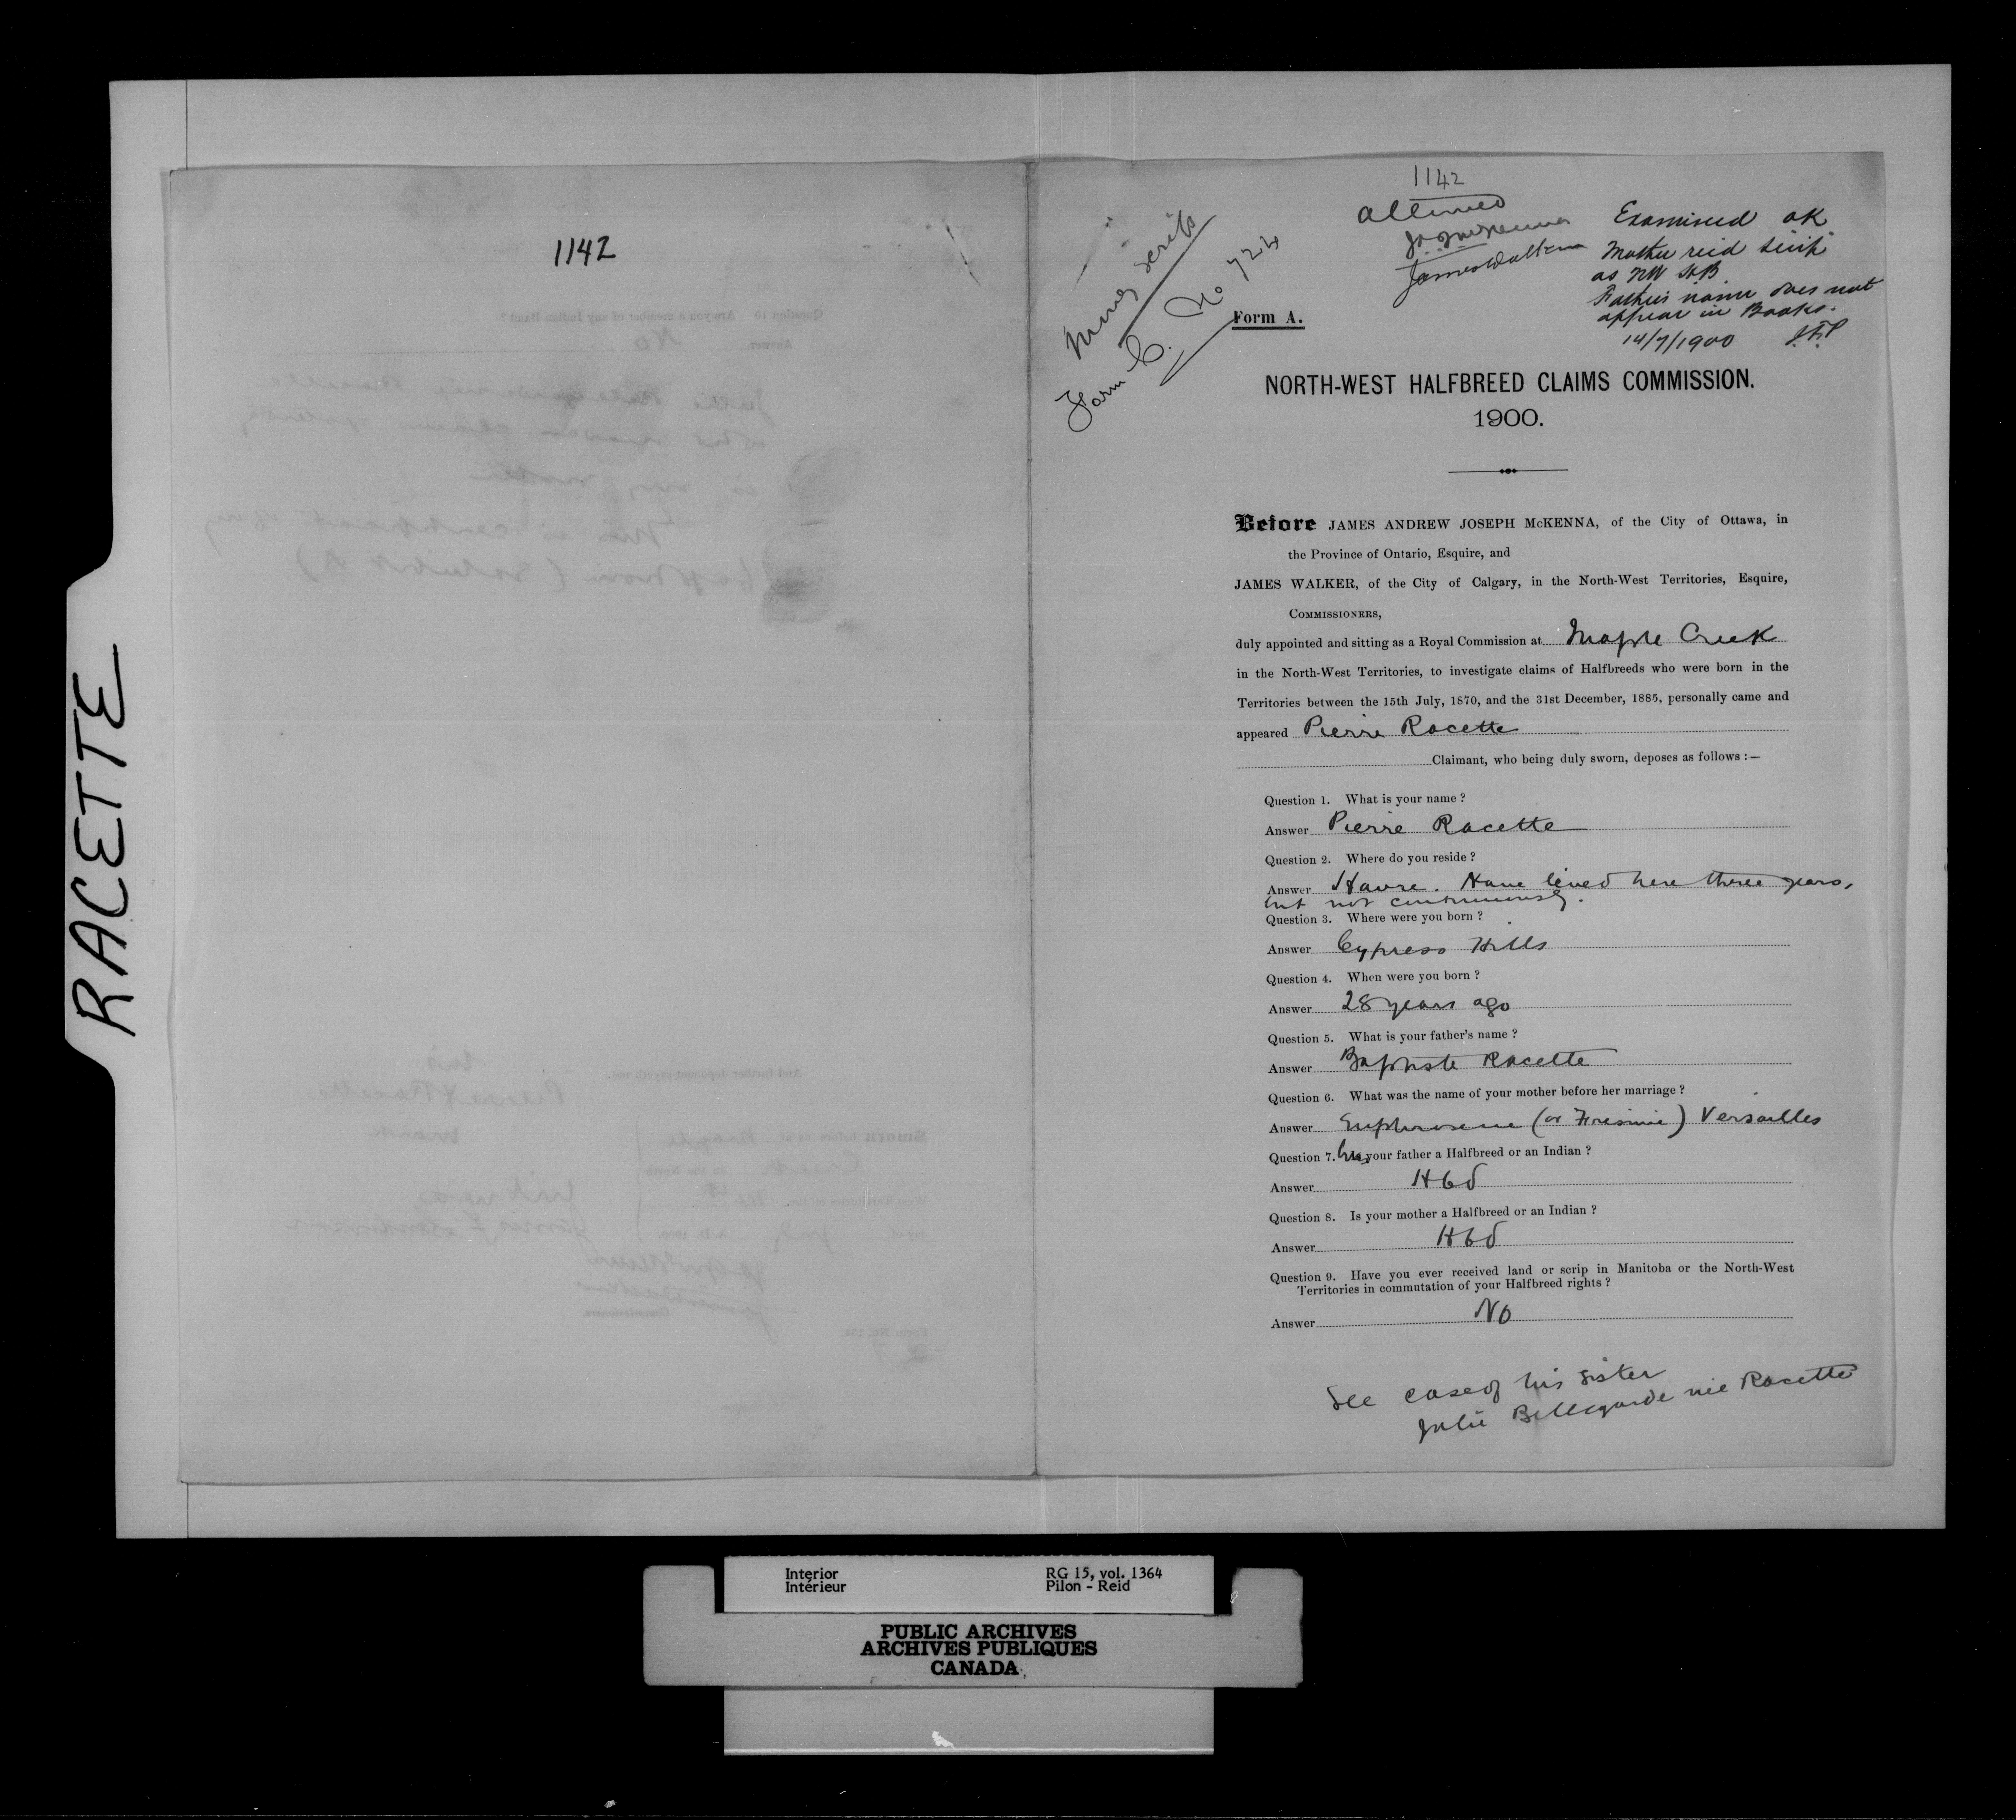 RACETTE
1142
1142
allowed
JAJ McKenna
James Walker
Examined OK
Mother recd scrip
as NW HB
Father's name does not
appear in Books.
14/7/1900
Money scrip
Form C. No 724
Form A.
NORTH-WEST HALFBREED CLAIMS COMMISSION.
1900.
Before JAMES ANDREW JOSEPH McKENNA, of the City of Ottawa, in
the Province of Ontario, Esquire, and
JAMES WALKER, of the City of Calgary, in the North-West Territories, Esquire,
COMMISSIONERS,
duly appointed and sitting as a Royal Commission at Maple Creek
in the North-West Territories, to investigate claims of Halfbreeds who were born in the
Territories between the 15th July, 1870, and the 31st December, 1885, personally came and
appeared Pierre Racette
Claimant, who being duly sworn, deposes as follows :—
Question 1. What is your name ?
Answer Pierre Racette
Question 2. Where do you reside ?
Answer Havre. Have lived here three years,
but not continuously.
Question 3. Where were you born ?
Answer Cypress Hills
Question 4. When were you born ?
Answer 28 years ago
Question 5. What is your father's name ?
Answer Baptiste Racette
Question 6. What was the name of your mother before her marriage ?
Answer Euphrosene (or Fresinie) Versailles
Question 7. Was your father a Halfbreed or an Indian ?
Answer Hbd
Question 8. Is your mother a Halfbreed or an Indian ?
Answer Hbd
Question 9. Have you ever received land or scrip in Manitoba or the North-West
Territories in commutation of your Halfbreed rights ?
Answer No
See case of his sister
Julie Bellegarde née Racette
Interior
Intérieur
RG 15, vol. 1364
Pilon - Reid
PUBLIC ARCHIVES
ARCHIVES PUBLIQUES
CANADA